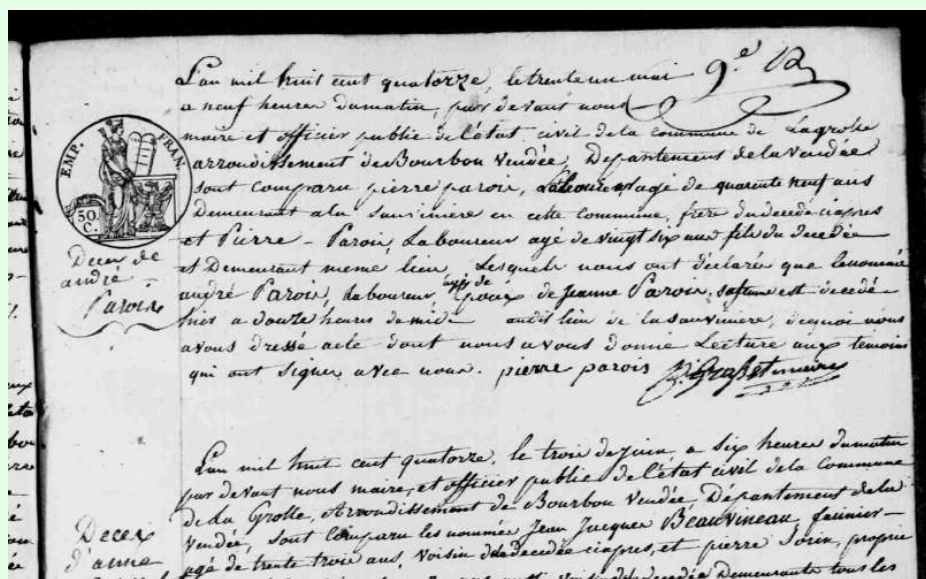 L'an mil huit cent quatorze, le trente un mai
9.e
a neuf heures du matin, par devant nous
maire et officier public de l'état civil de la commune de Lagrolle
arrondissement de Bourbon Vendée, Departement de la vendée
sont comparu pierre parois, Laboureur, agé de quarente neuf ans
Demeurant a la Sauviniere en cette commune, frere du decedé ciapres
et Pierre - Parois, Laboureur agé de vingt six ans fils du decedée
et Demeurant meme lieu, Lesquels nous ont déclarée que le nommé
andré Parois, laboureur, agé de époux de Jeanne Parois, sa femme est decedé
hier a douze heures de midi audit lieu de la sauviniere, de quoi nous
avons dressé acte dont nous avons donné Lecture aux temoins
qui ont signer avec nous. pierre parois
EMP. FRAN
50
C.
Deces de
andré
Parois
L'an mil huit cent quatorze. le trois de juin, a six heures du matin
par devant nous maire, et officier public de l'état civil de la Commune
de La Grolle, Arrondissement de Bourbon Vendée, Département de la
Vendée, sont Comparu les nommés Jean Jacques Beauvineau, farinier
agé de trente trois ans, voisin de la decedée ciapres, et pierre Sorin, proprie
Demeurante tous les
Deces
d'anne